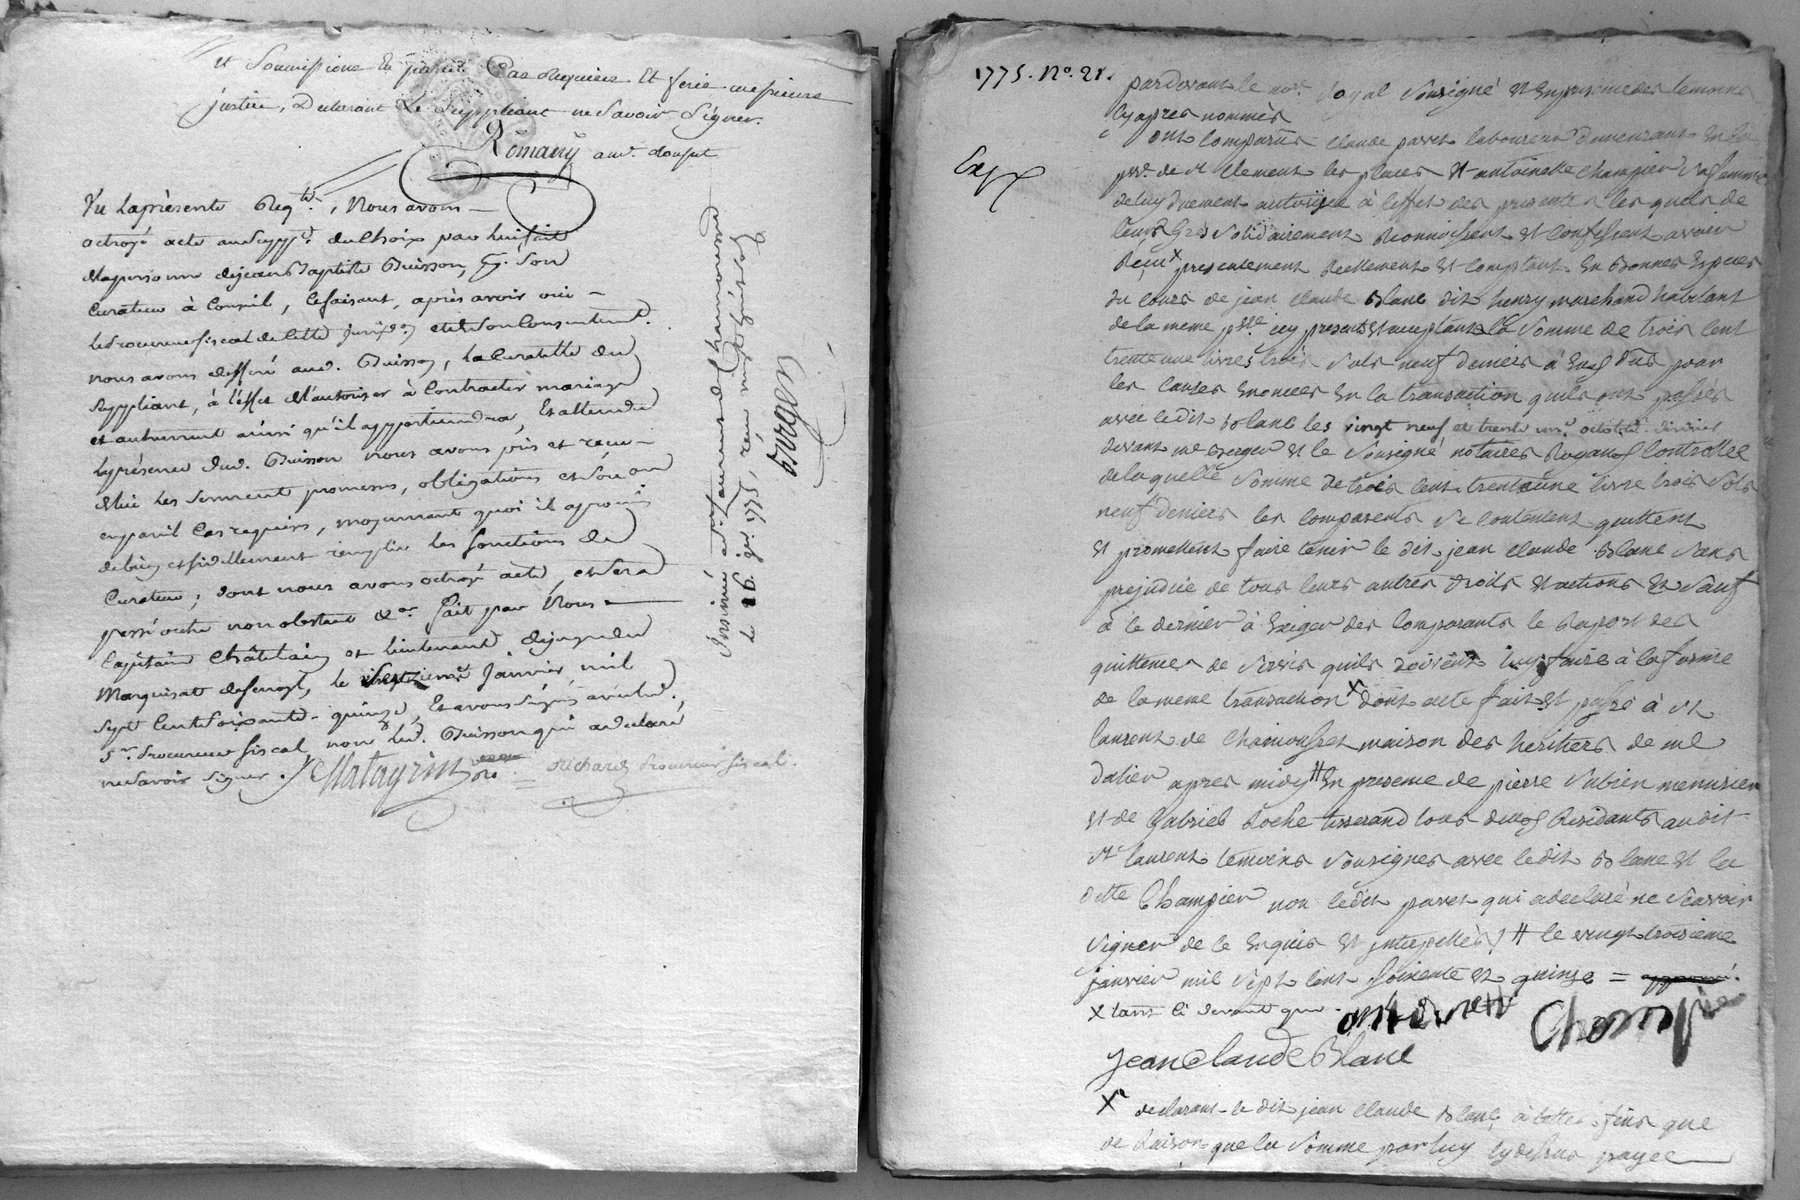 et soumissions en pareil Cas Requises Et ferés
justice, Declarant Le suppliant ne savoir signer.
Romany
Vu la présente Reqte, Nous avons
octroyé acte au supplt du Choix par lui fait
de la personne de jean Baptiste Buisson, pr. son
Curateur à Conseil, Ce faisant, après avoir oui
le Procureur fiscal de cette et de son Consentement.
nous avons defferé aud. Buisson, la Curatelle du
suppliant, à l'effet de l'autoriser à Contracter mariage
et autrement ainsi qu'il appartiendra, Et attendu
la présence dud. Buisson nous avons pris et reçu
de lui les serment promesses, obligations et
en pareil Cas requises, moyennant quoi il a promis
de bien et fidellement remplir les fonctions de
Curateur; dont nous avons octroyé acte, et sera
passé outre nonobstant &a. fait par Nous
Capitaine Châtelain et lieutenant de juge du
Marquisat le janvier mil
sept Cent soixante-quinze, Et avons signés avec led.
Sr. Procureur fiscal, non led. Buisson qui a declaré
ne savoir signer
Richard Procureur fiscal.
Insinué à St. Laurent de Chamousset
le 26. jer. 1775, reçu
Burger
1775. No. 21.
Exp
pardevant le nore. Royal soussigné et en presence des temoins
cy apres nommés
ont comparus claude pavet laboureur demeurant en la
psse. de st Clement les places et antoinette Champier sa femme
de luy duement autorisée à l'effet des presentes les quels de
leurs gres solidairement reconnoissent et confessent avoir
reçu x presentement reellement et comptant en bonnes especes
du cours de jean claude Blanc dit henry marchand habitant
de la meme psse icy present et acceptant la somme de trois cent
trente une livres trois sols neuf deniers à eux dus pour
les causes enoncées en la transaction quils ont passés
avec ledit Blanc les vingt neuf et trente un octobre dernier
devant me Berger et le soussigné notaires Royaux Controllée
de laquelle somme de trois cent trente une livre trois sols
neuf deniers les comparants se contentent quittent
et promettent faire tenir le dit jean claude Blanc sans
prejudice de tous leurs autres droits et actions et sauf
à le dernier à exiger des comparants le raport des
quittances de quils doivent luy faire à la forme
de la meme transaction x dont acte fait et passé à st
laurent de chamousset maison des heritiers de me
Dalier apres midy # En presence de pierre menuisier
et de Gabriel Roche tisserand tous deux Residants audit
st laurent temoins soussignes avec ledit Blanc et la
dite Champier non ledit pavet qui a declaré ne scavoir
signer de ce enquis et interpellés / # le vingt troisieme
janvier mil sept cent soixente et quinze =
x tant ci devant que
antoinette Champier
jean claude Blanc
x declarant le dit jean claude Blanc à telles fins que
de Raison que la somme par luy cy dessus payée